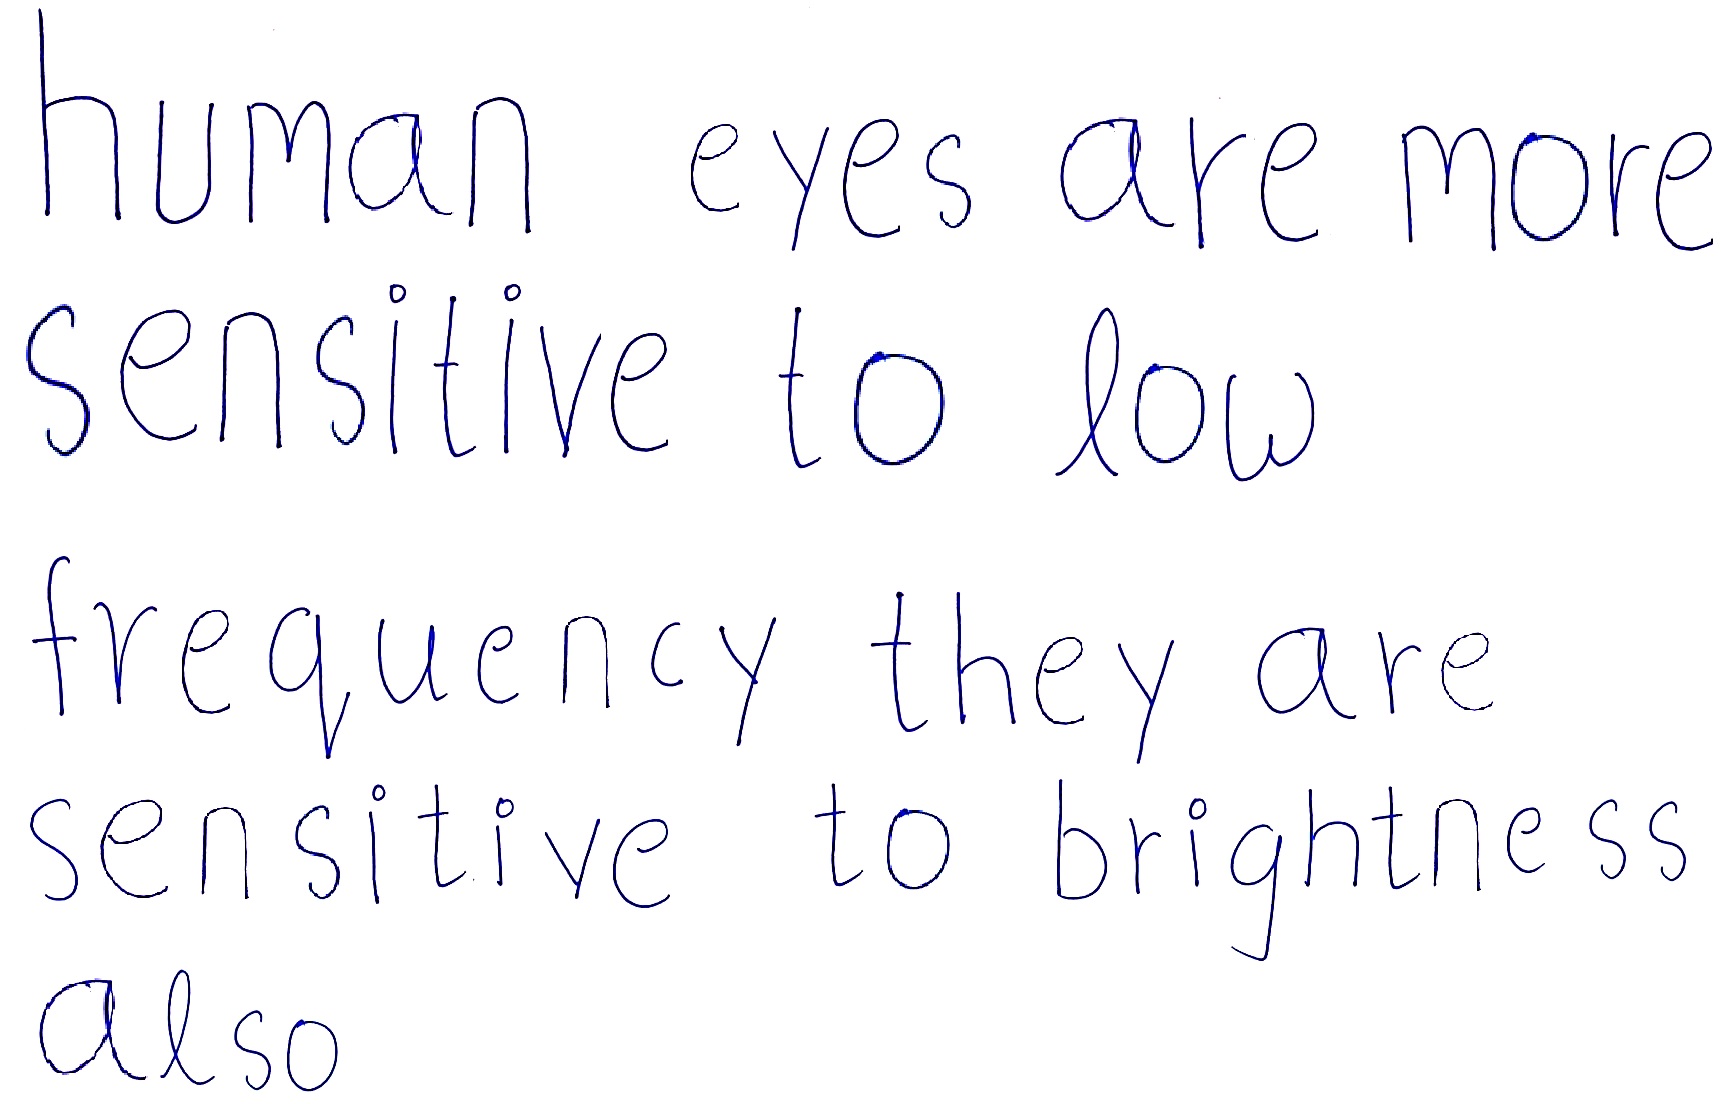 human eyes are more
sensitive to low
frequency they are
sensitive to brightness
also